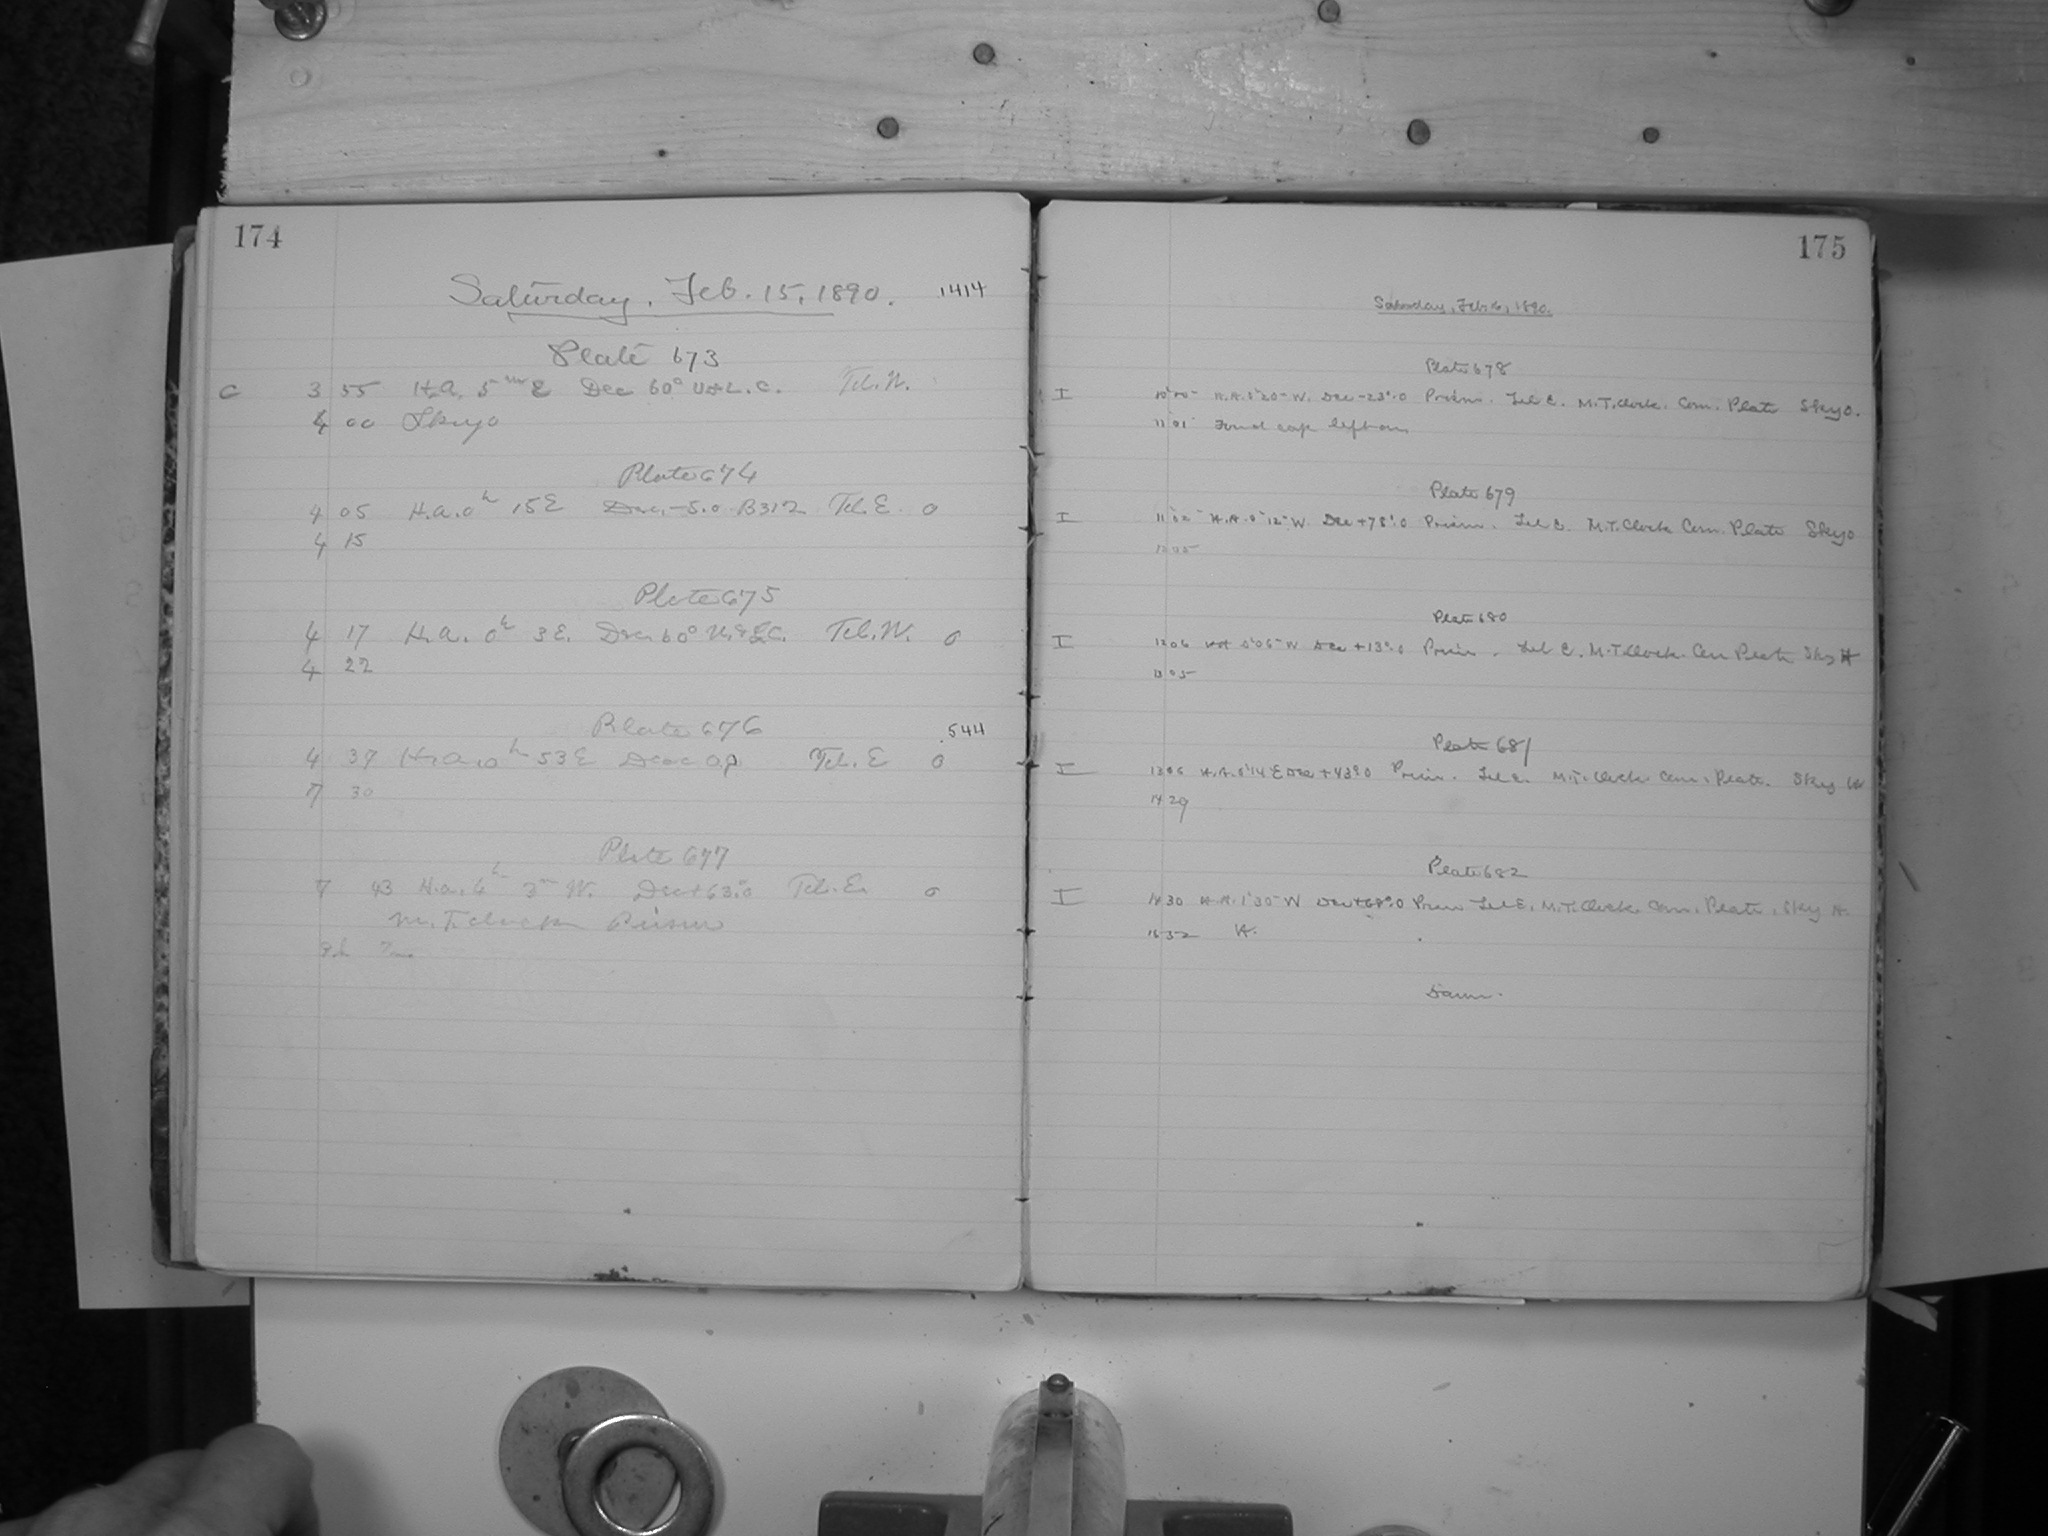 174
Saturday, Feb. 15, 1890. 1414
Plate 673
C 3 55 H.a. 5m E Dec 60° U & L. C. Tel. W.
4 00 Sky 0
Plate 674
4 05 H.a. 0h 15 E Dec. -5.0 B312 Tel. E. 0
4 15
Plate 675
4 17 H.a. 0h 3 E. Dec. 60° U. & L.C. Tel. W. 0
4 22
Plate 676 .544
4 37 H.a. 0h 53 E Tel. E 0
7 30
Plate 677
7 43 H.a. 6h 3m W. Dec +63.0 Tel. E. 0
M.T. clock Prism
175
Saturday, Feb. 1890.
Plate 678
I H.A. 5h 20m W. Dec -23°.0 Prism. Tel E. M.T. Clock. Com. Plate Sky 0.
11 01 Found cap left on
Plate 679
I 11 02 H.A. 0h 12m W. Dec +78°.0 Prism. Tel E. M.T. Clock Com. Plate Sky 0
12 05
Plate 680
I 12 06 W Dec +13°.0 Prism. Tel E. M.T. Clock. Com Plate Sky
13 05
Plate 681
I 13 06 H.A. 0h 14m E Dec +43°.0 Prism. Tel E. M.T. Clock. Com. Plate. Sky
14 29
Plate 682
I 14 30 H.A. 1h 35m W Prism Tel E. M.T. Clock. Com. Plate. Sky
32
Dawn.